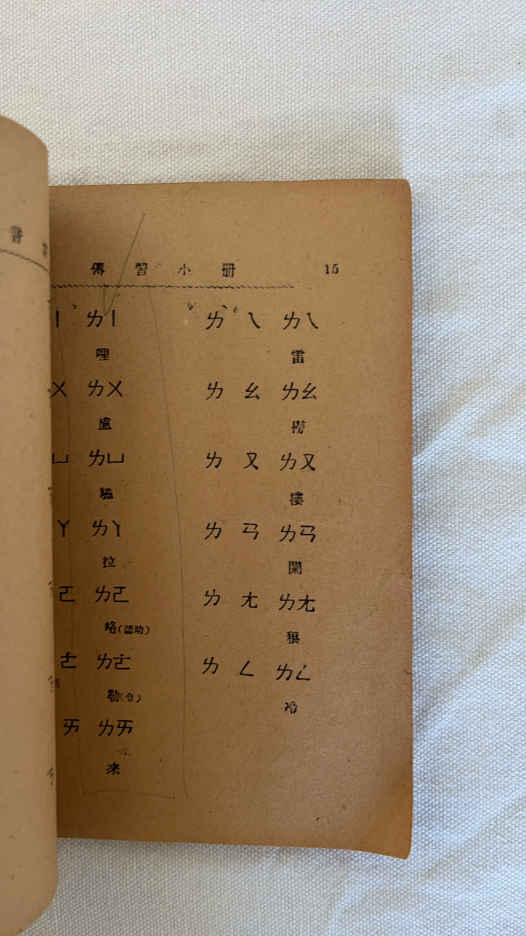 傳習小册 15
ㄌㄧ ㄌ ㄟ ㄌㄟ
哩 雷
ㄨ ㄌㄨ ㄌ ㄠ ㄌㄠ
盧 撈
ㄩ ㄌㄩ ㄌ ㄡ ㄌㄡ
驢 摟
ㄚ ㄌㄚ ㄌ ㄢ ㄌㄢ
拉 闌
ㄛ ㄌㄛ ㄌ ㄤ ㄌㄤ
咯(語助) 狼
ㄜ ㄌㄜ ㄌ ㄥ ㄌㄥ
勒 冷
ㄞ ㄌㄞ
來